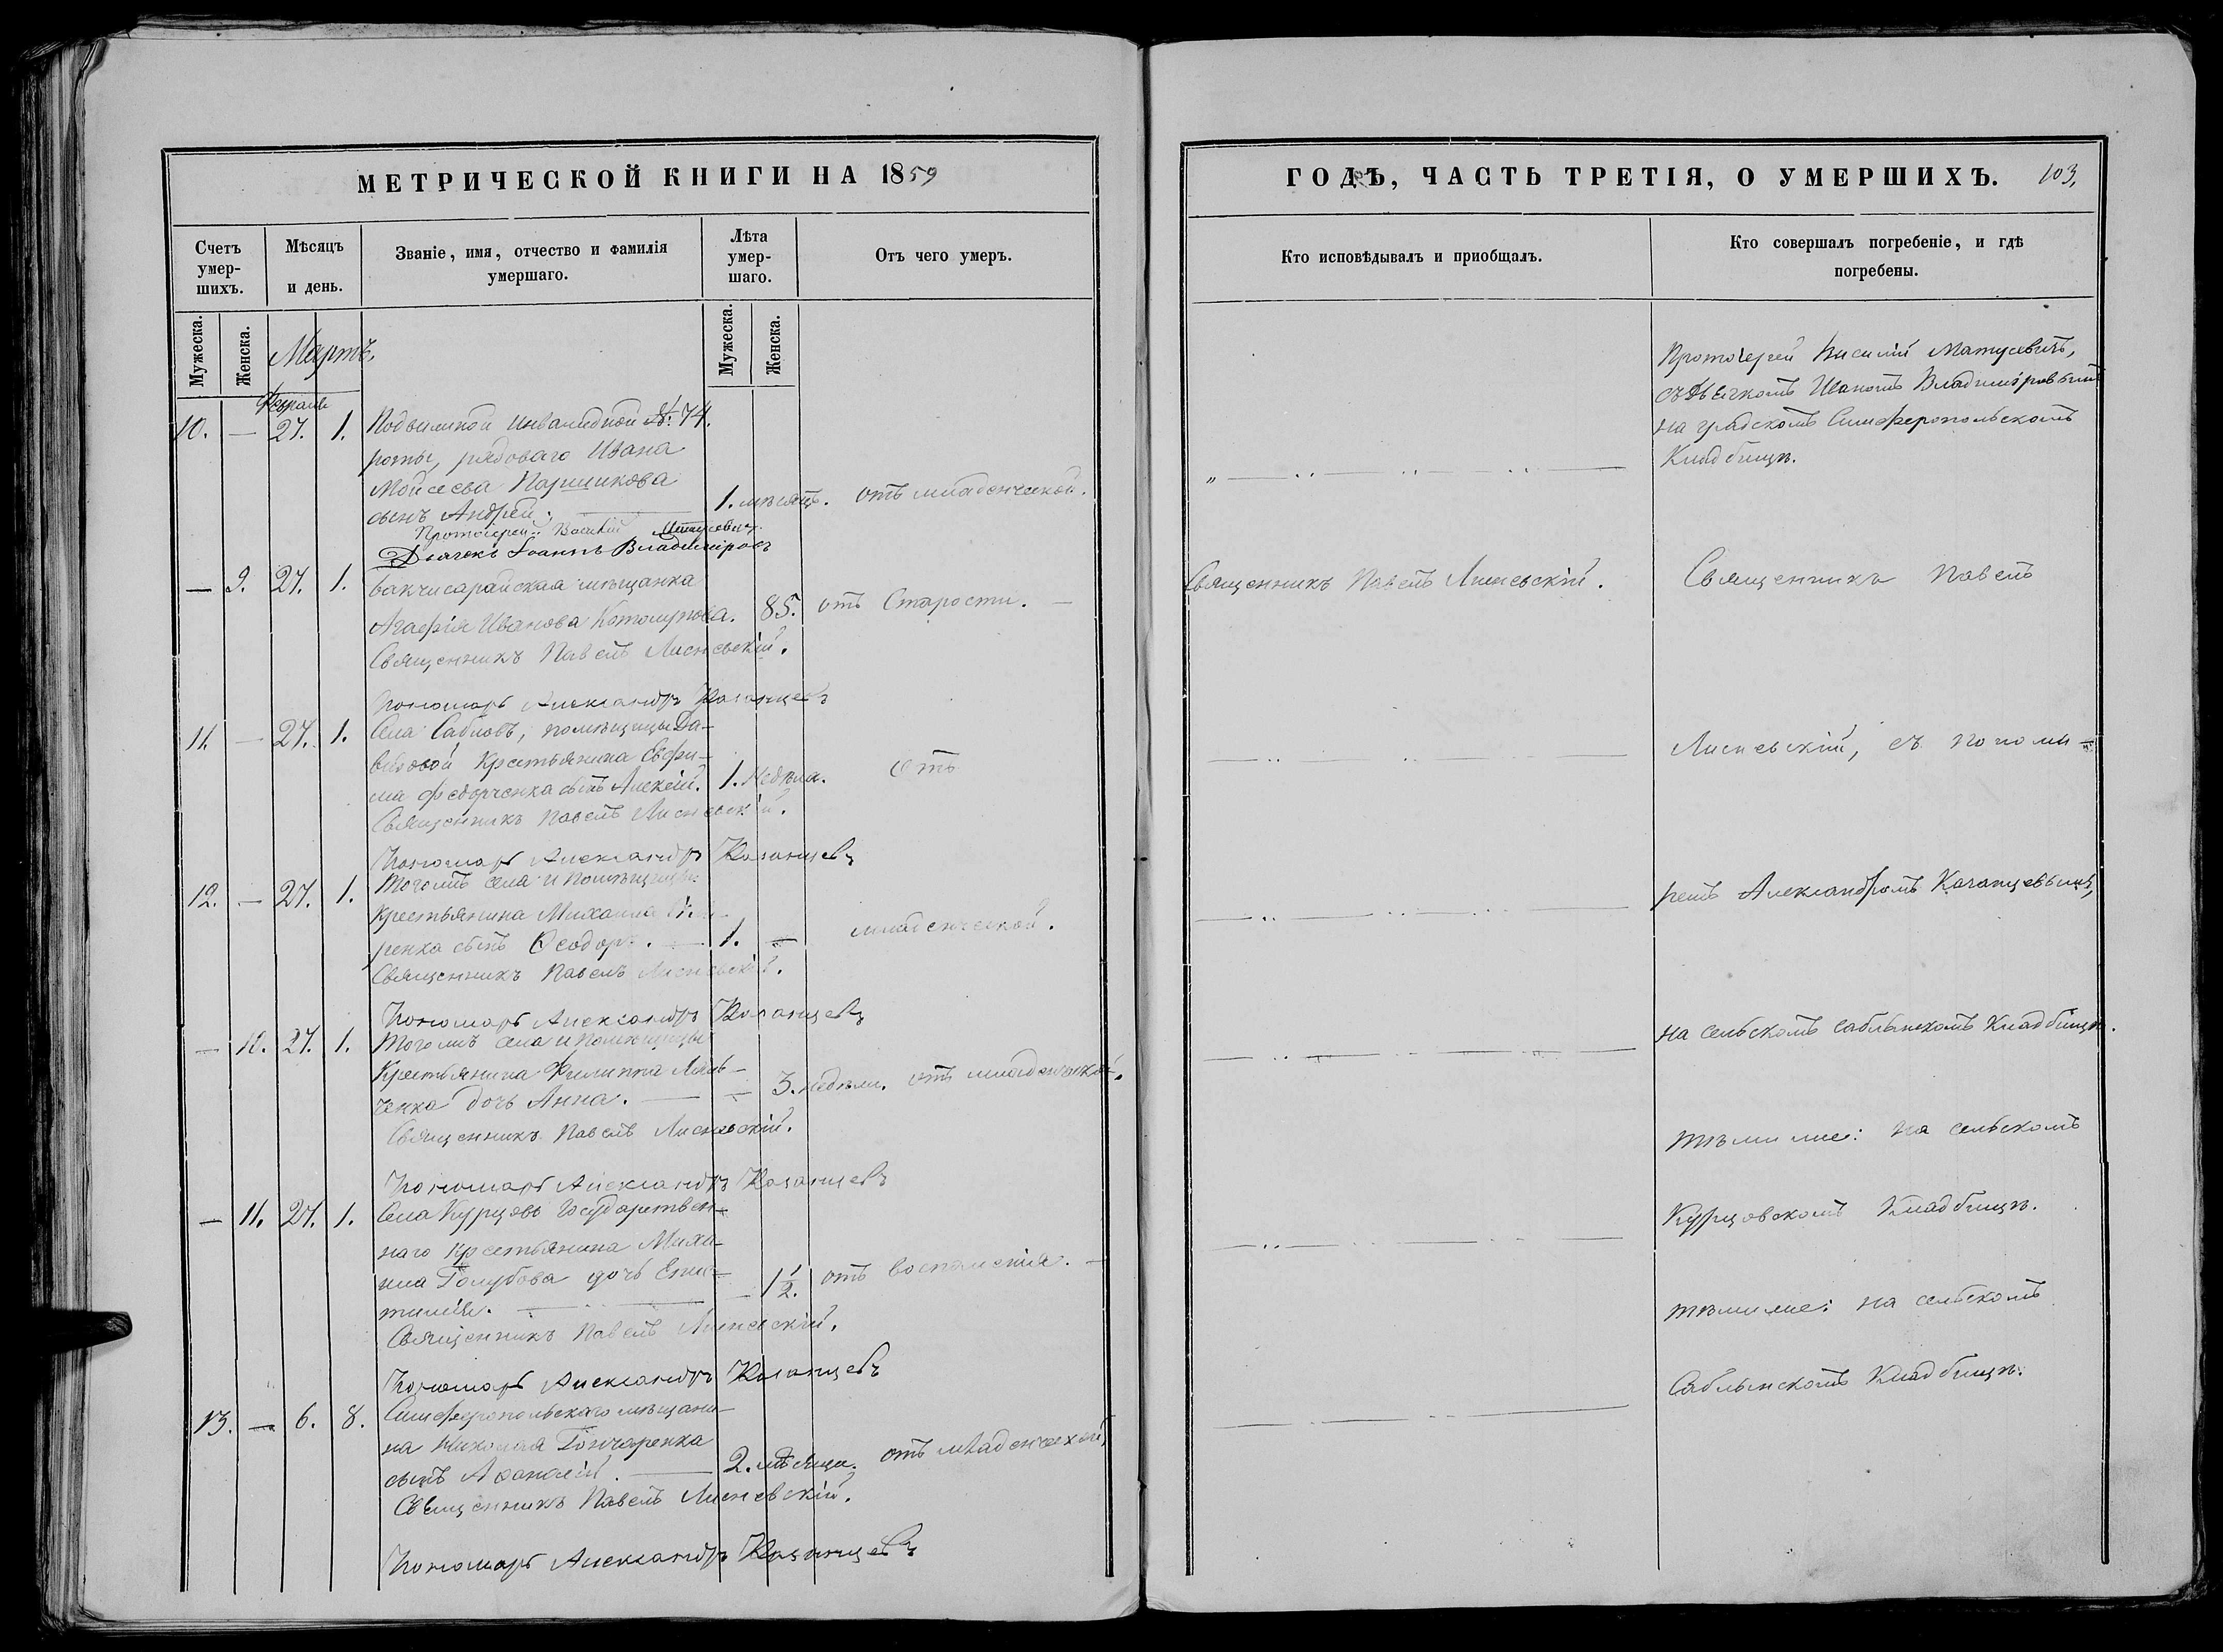 МЕТРИЧЕСКОЙ КНИГИ НА 1859
Счетъ умер-шихъ.
Мѣсяцъ и день.
Званіе, имя, отчество и фамилія умершаго.
Лѣта умер-шаго.
Отъ чего умеръ.
Мужеска.
Женска.
Мартъ.
Мужеска.
Женска.
10. — 27. 1. Подвижной инвалидной №: 74.
роты, рядоваго Ивана
Мойсеева Паршикова
сынъ Андрей. 1. мѣсяцъ. отъ младенческой.
Протоіерей Василій Матусевичъ
Дьячекъ Іоаннъ Владиміровъ
— 9. 27. 1. Бакчисарайская мѣщанка
Агафія Иванова 85. отъ Старости. —
Священникъ Павелъ Лисневскій.
Пономарь Александръ Казанцевъ
11. — 27. 1. Села Сабловъ, помѣщицы Да-
выдовой Крестьянина Евфи-
ма Федорченка сынъ Алексій. 1. Недѣля. отъ
Священникъ Павелъ Лисневскій.
Пономарь Александръ Казанцевъ
12. — 27. 1. Тогожъ села и Помѣщицы
Крестьянина Михаила
ренка сынъ Ѳеодоръ. — 1. — младенческой.
Священникъ Павелъ Лисневскій.
Пономарь Александръ Казанцевъ
— 10. 27. 1. Тогожъ села и Помѣщицы
Крестьянина Филиппа
ченка дочь Анна. — 3. недѣли. отъ младенческой.
Священникъ Павелъ Лисневскій.
Пономарь Александръ Казанцевъ
— 11. 27. 1. Села Курцовъ Государствен-
наго Крестьянина Миха-
ила Голубова дочь Епис-
тимія. 1½. отъ воспаленія. —
Священникъ Павелъ Лисневскій.
Пономарь Александръ Казанцевъ
13. — 6. 8. Симферопольскаго мѣщани-
на Николая Гончаренка
сынъ Аѳанасій. — 2. мѣсяца. отъ младенческой,
Священникъ Павелъ Лисневскій.
Пономарь Александръ Казанцевъ
ГОДЪ, ЧАСТЬ ТРЕТІЯ, О УМЕРШИХЪ. 103,
Кто исповѣдывалъ и пріобщалъ.
Кто совершалъ погребеніе, и гдѣ погребены.
Протоіерей Василій Матусевичъ,
съ Дьячкомъ Иваномъ Владиміровымъ
на градскомъ Симферопольскомъ
Кладбищѣ.
Священникъ Павелъ Лисневскій.
Священникъ Павелъ
Лисневскій, съ понома-
ремъ Александромъ Казанцевымъ,
на сельскомъ саблынскомъ Кладбищѣ.
тѣмиже: на сельскомъ
Курцовскомъ Кладбищѣ.
тѣмиже: на сельскомъ
Саблынскомъ Кладбищѣ.